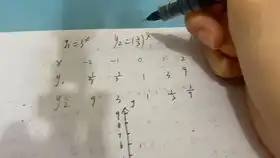 y₁=3ˣ y₂=(1/3)ˣ
x -2 -1 0 1 2
y₁ 1/9 1/3 1 3 9
y₂ 9 3 1 1/3 1/9
y
9
8
7
6